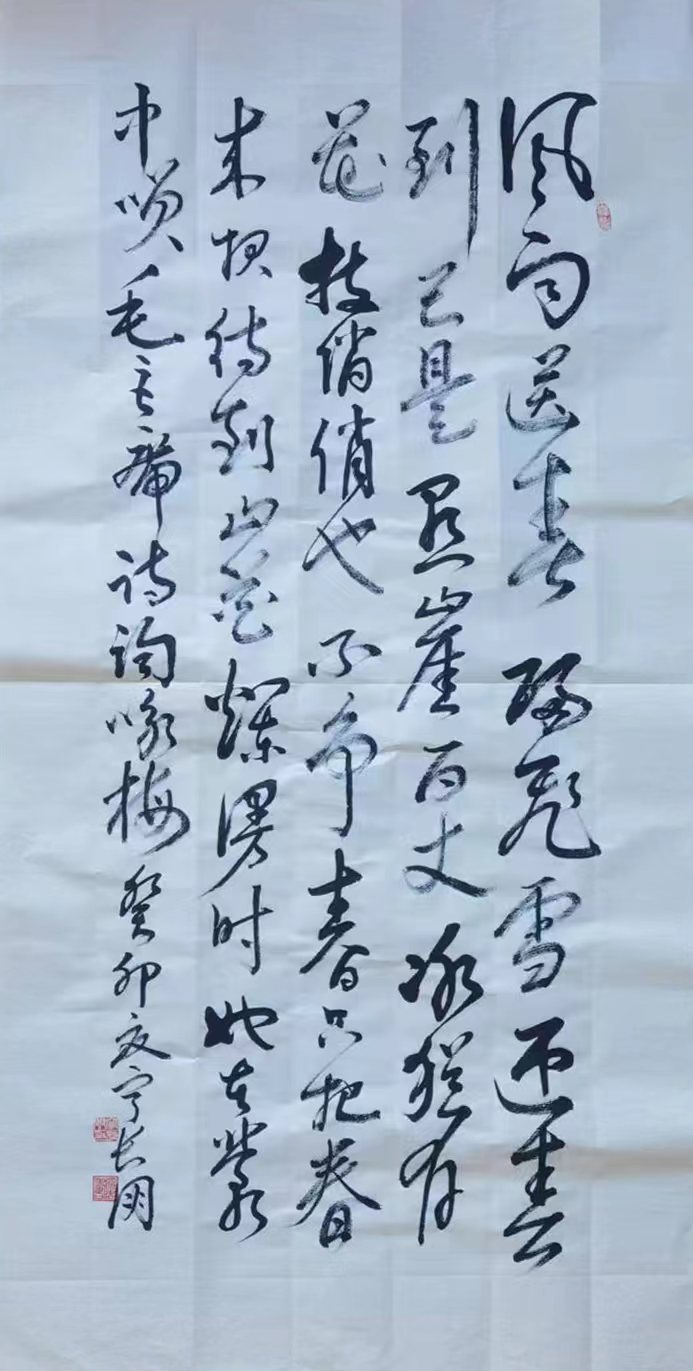 风雨送春歸飛雪迎春
到已是悬崖百丈冰猶有
花枝俏俏也不争春只把春
来报待到山花爛漫时她在叢
中咲毛主席诗词咏梅癸卯夏宁长